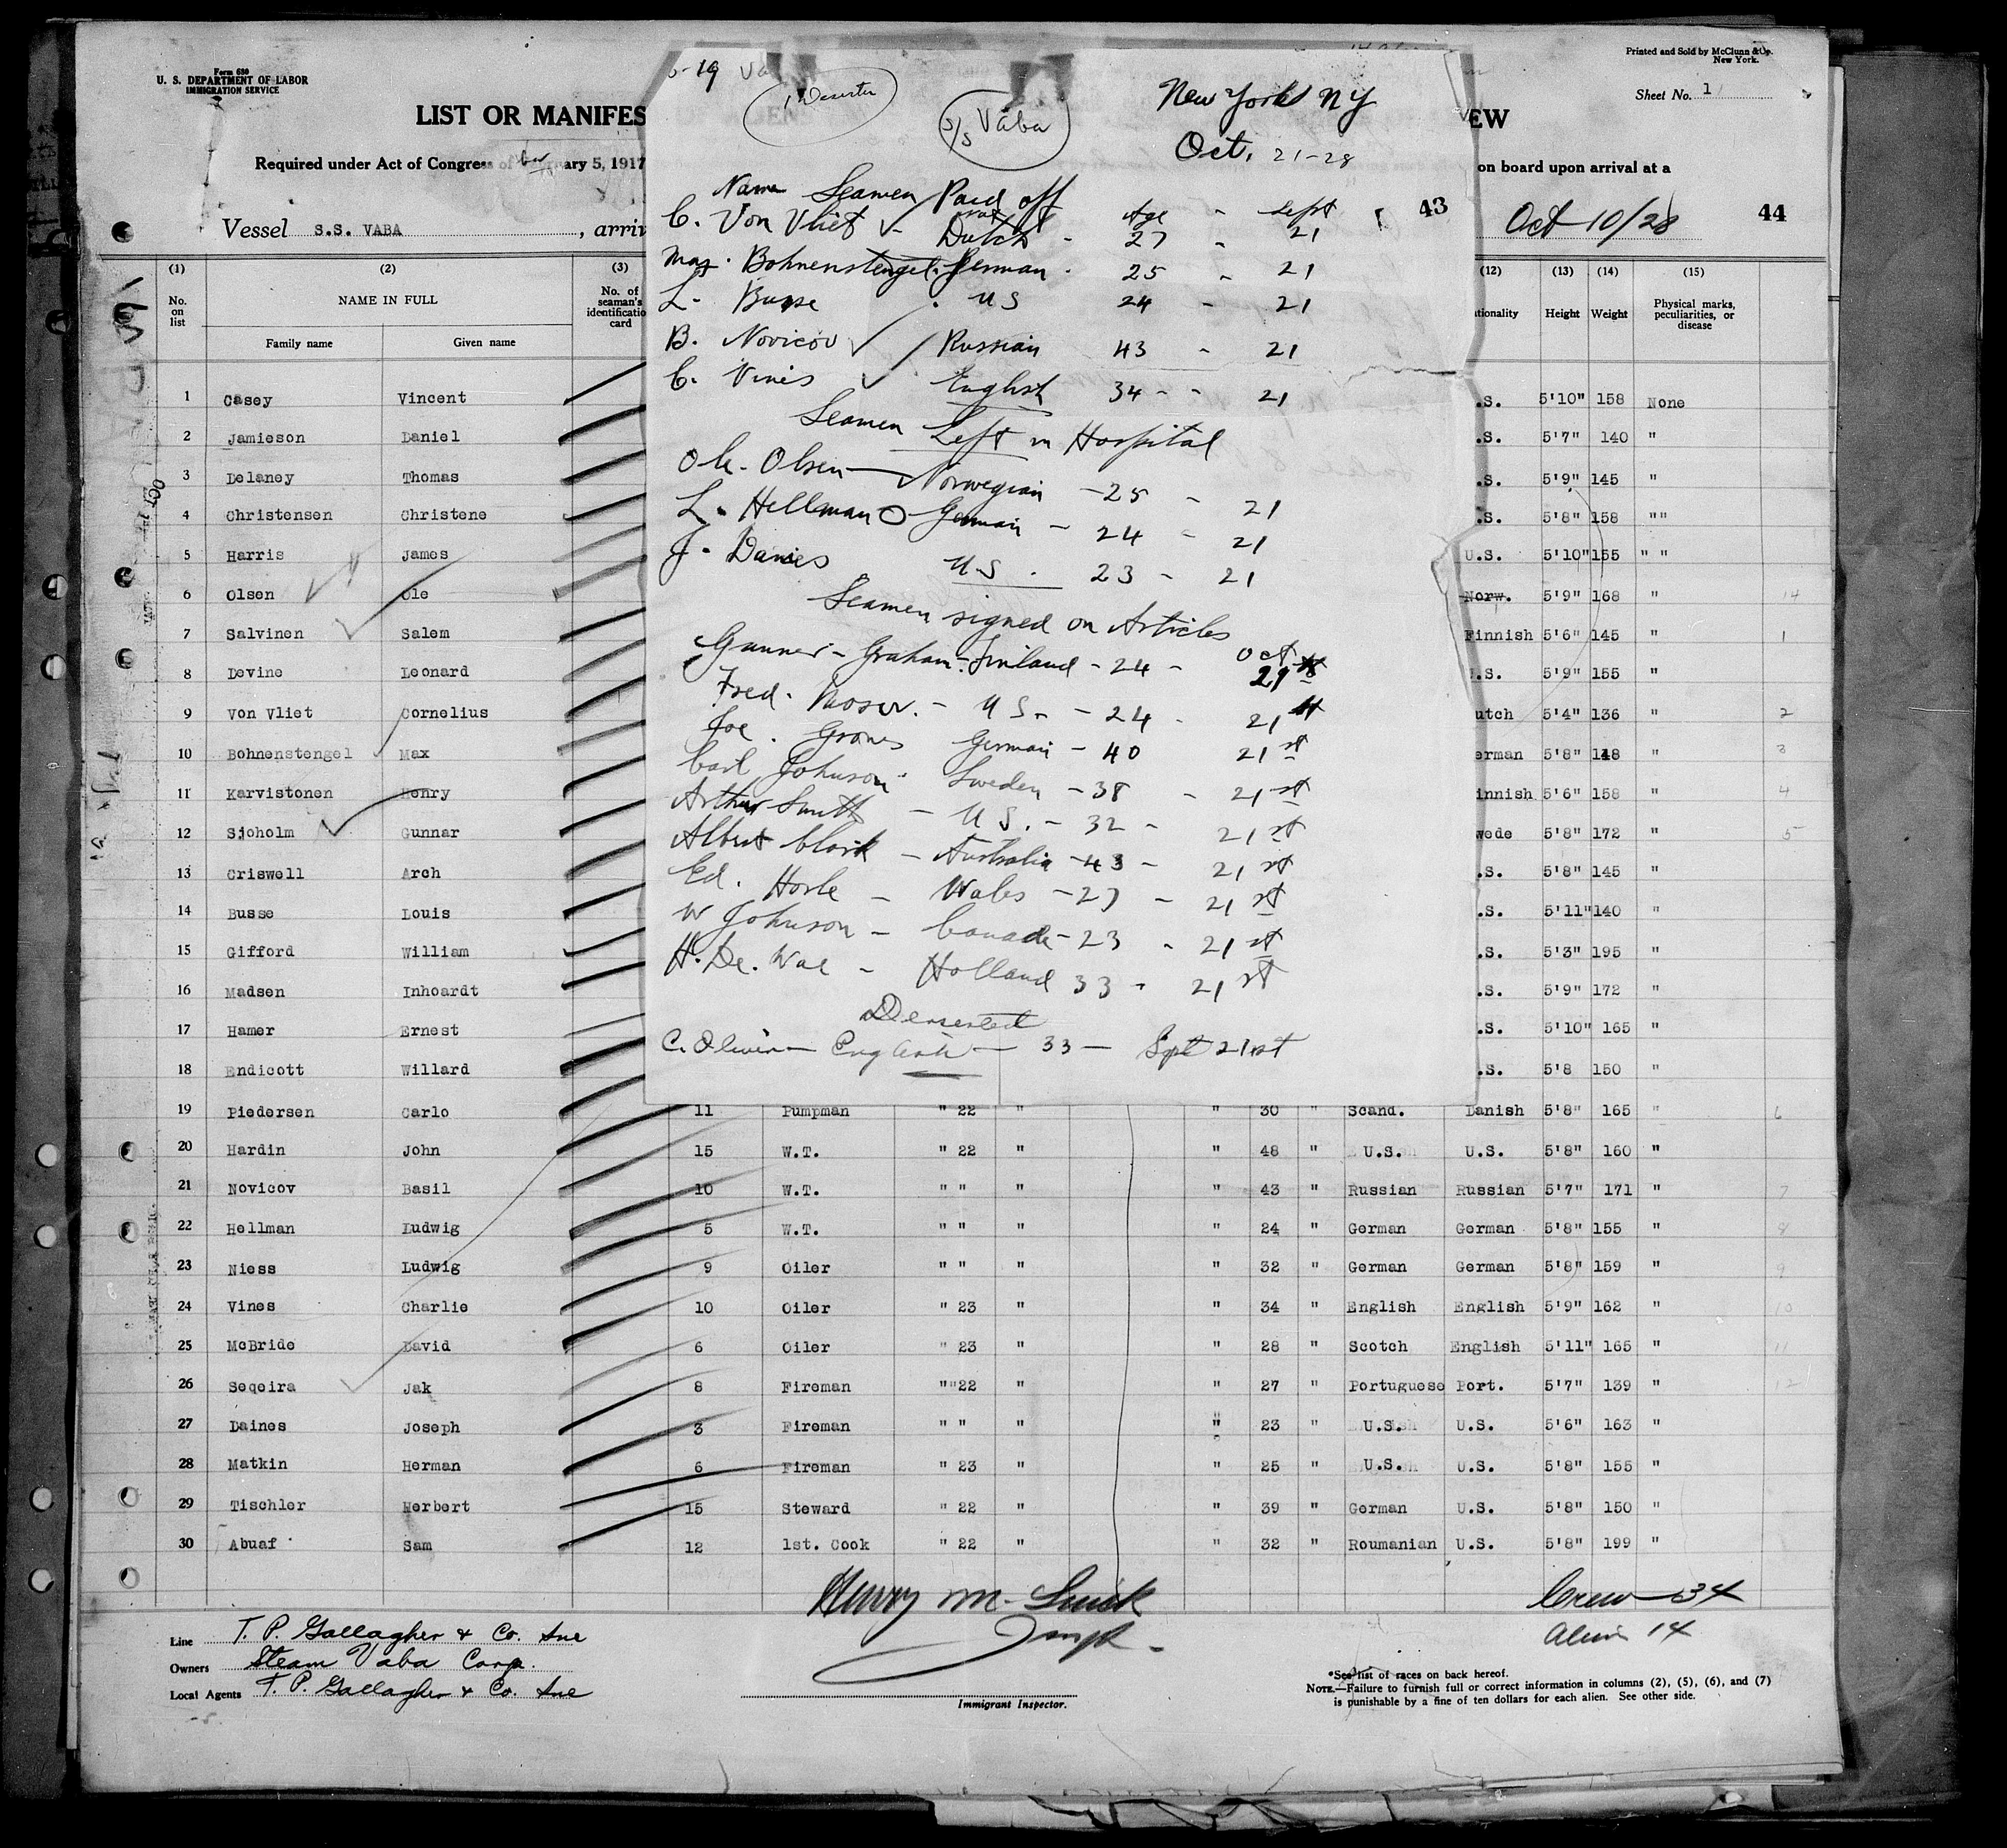 Form 680
U. S. DEPARTMENT OF LABOR
IMMIGRATION SERVICE
Printed and Sold by McClunn & Co.
New York.
Sheet No. 1
LIST OR MANIFES
EW
Required under Act of Congress of ary 5, 1917
on board upon arrival at a
Vessel S.S. VABA , arriv
Oct 10/28
44
43
1 Deserter
S/S Vaba
New York NY
Oct. 21-28
Name Seamen Paid off
Age - Sept
C. Von Vliet Dutch - 27 - 21
Max. Bohnenstengel. German - 25 - 21
L. Busse . US 24 - 21
B. Novicov Russian 43 - 21
C. Vines English 34 - - 21
Seamen Left in Hospital
Ole Olsen Norwegian - 25 - 21
L. Hellman German - 24 - 21
J. Danies U.S. 23 - 21
Seamen signed on Articles
Oct
Gunner - Graham - Finland - 24 - 21st
Fred. Moser. - U S. - 24 - 21st
Joe . Grones German - 40 21st
Carl Johnson Sweden - 38 - 21st
Arthur Smith - U S. - 32 - 21st
Albert Clark - Australia - 43 - 21st
Ed. Horle - Wales - 27 - 21st
W Johnson - Canada - 23 - 21st
H. De. Wal - Holland 33 - 21st
Deserted
C. Oliver - English - 33 - Sept 21st
(1) (2) (3) (12) (13) (14) (15)
No. on list NAME IN FULL No. of seaman's identificatio card tionality Height Weight Physical marks, peculiarities, or disease
Family name Given name
1 Casey Vincent .S. 5'10" 158 None
2 Jamieson Daniel .S. 5'7" 140 "
3 Delaney Thomas .S. 5'9" 145 "
4 Christensen Christene .S. 5'8" 158 ""
5 Harris James U.S. 5'10" 155 " "
6 Olsen Ole Norw. 5'9" 168 " 14
7 Salvinen Salem Finnish 5'6" 145 " 1
8 Devine Leonard U.S. 5'9" 155 "
9 Von Vliet Cornelius utch 5'4" 136 " 2
10 Bohnenstengel Max erman 5'8" 148 " 3
11 Karvistonen Henry innish 5'6" 158 " 4
12 Sjoholm Gunnar wede 5'8" 172 " 5
13 Criswell Arch .S. 5'8" 145 "
14 Busse Louis .S. 5'11" 140 "
15 Gifford William .S. 5'3" 195 "
16 Madsen Inhoardt .S. 5'9" 172 "
17 Hamer Ernest .S. 5'10" 165 "
18 Endicott Willard .S. 5'8 150 "
19 Piedersen Carlo 11 Pumpman " 22 " " 30 " Scand. Danish 5'8" 165 " 6
20 Hardin John 15 W.T. " 22 " " 48 " U.S. U.S. 5'8" 160 "
21 Novicov Basil 10 W.T. " " " " 43 " Russian Russian 5'7" 171 " 7
22 Hellman Ludwig 5 W.T. " " " " 24 " German German 5'8" 155 " 8
23 Niess Ludwig 9 Oiler " " " " 32 " German German 5'8" 159 " 9
24 Vines Charlie 10 Oiler " 23 " " 34 " English English 5'9" 162 " 10
25 McBride David 6 Oiler " 23 " " 28 " Scotch English 5'11" 165 " 11
26 Seqeira Jak 8 Fireman ""22 " " 27 " Portuguese Port. 5'7" 139 " 12
27 Daines Joseph 3 Fireman " " " " 23 " U.S. U.S. 5'6" 163 "
28 Matkin Herman 6 Fireman " 23 " " 25 " U.S. U.S. 5'8" 155 "
29 Tischler Herbert 15 Steward " 22 " " 39 " German U.S. 5'8" 150 "
30 Abuaf Sam 12 1st. Cook " 22 " " 32 " Roumanian U.S. 5'8" 199 "
Crew 34
Alien 14
Line T. P. Gallagher & Co. Inc
Owners Steam Vaba Corp.
Local Agents T. P. Gallagher & Co. Inc
Henry M.
Immigrant Inspector.
*See list of races on back hereof.
NOTE.—Failure to furnish full or correct information in columns (2), (5), (6), and (7)
is punishable by a fine of ten dollars for each alien. See other side.